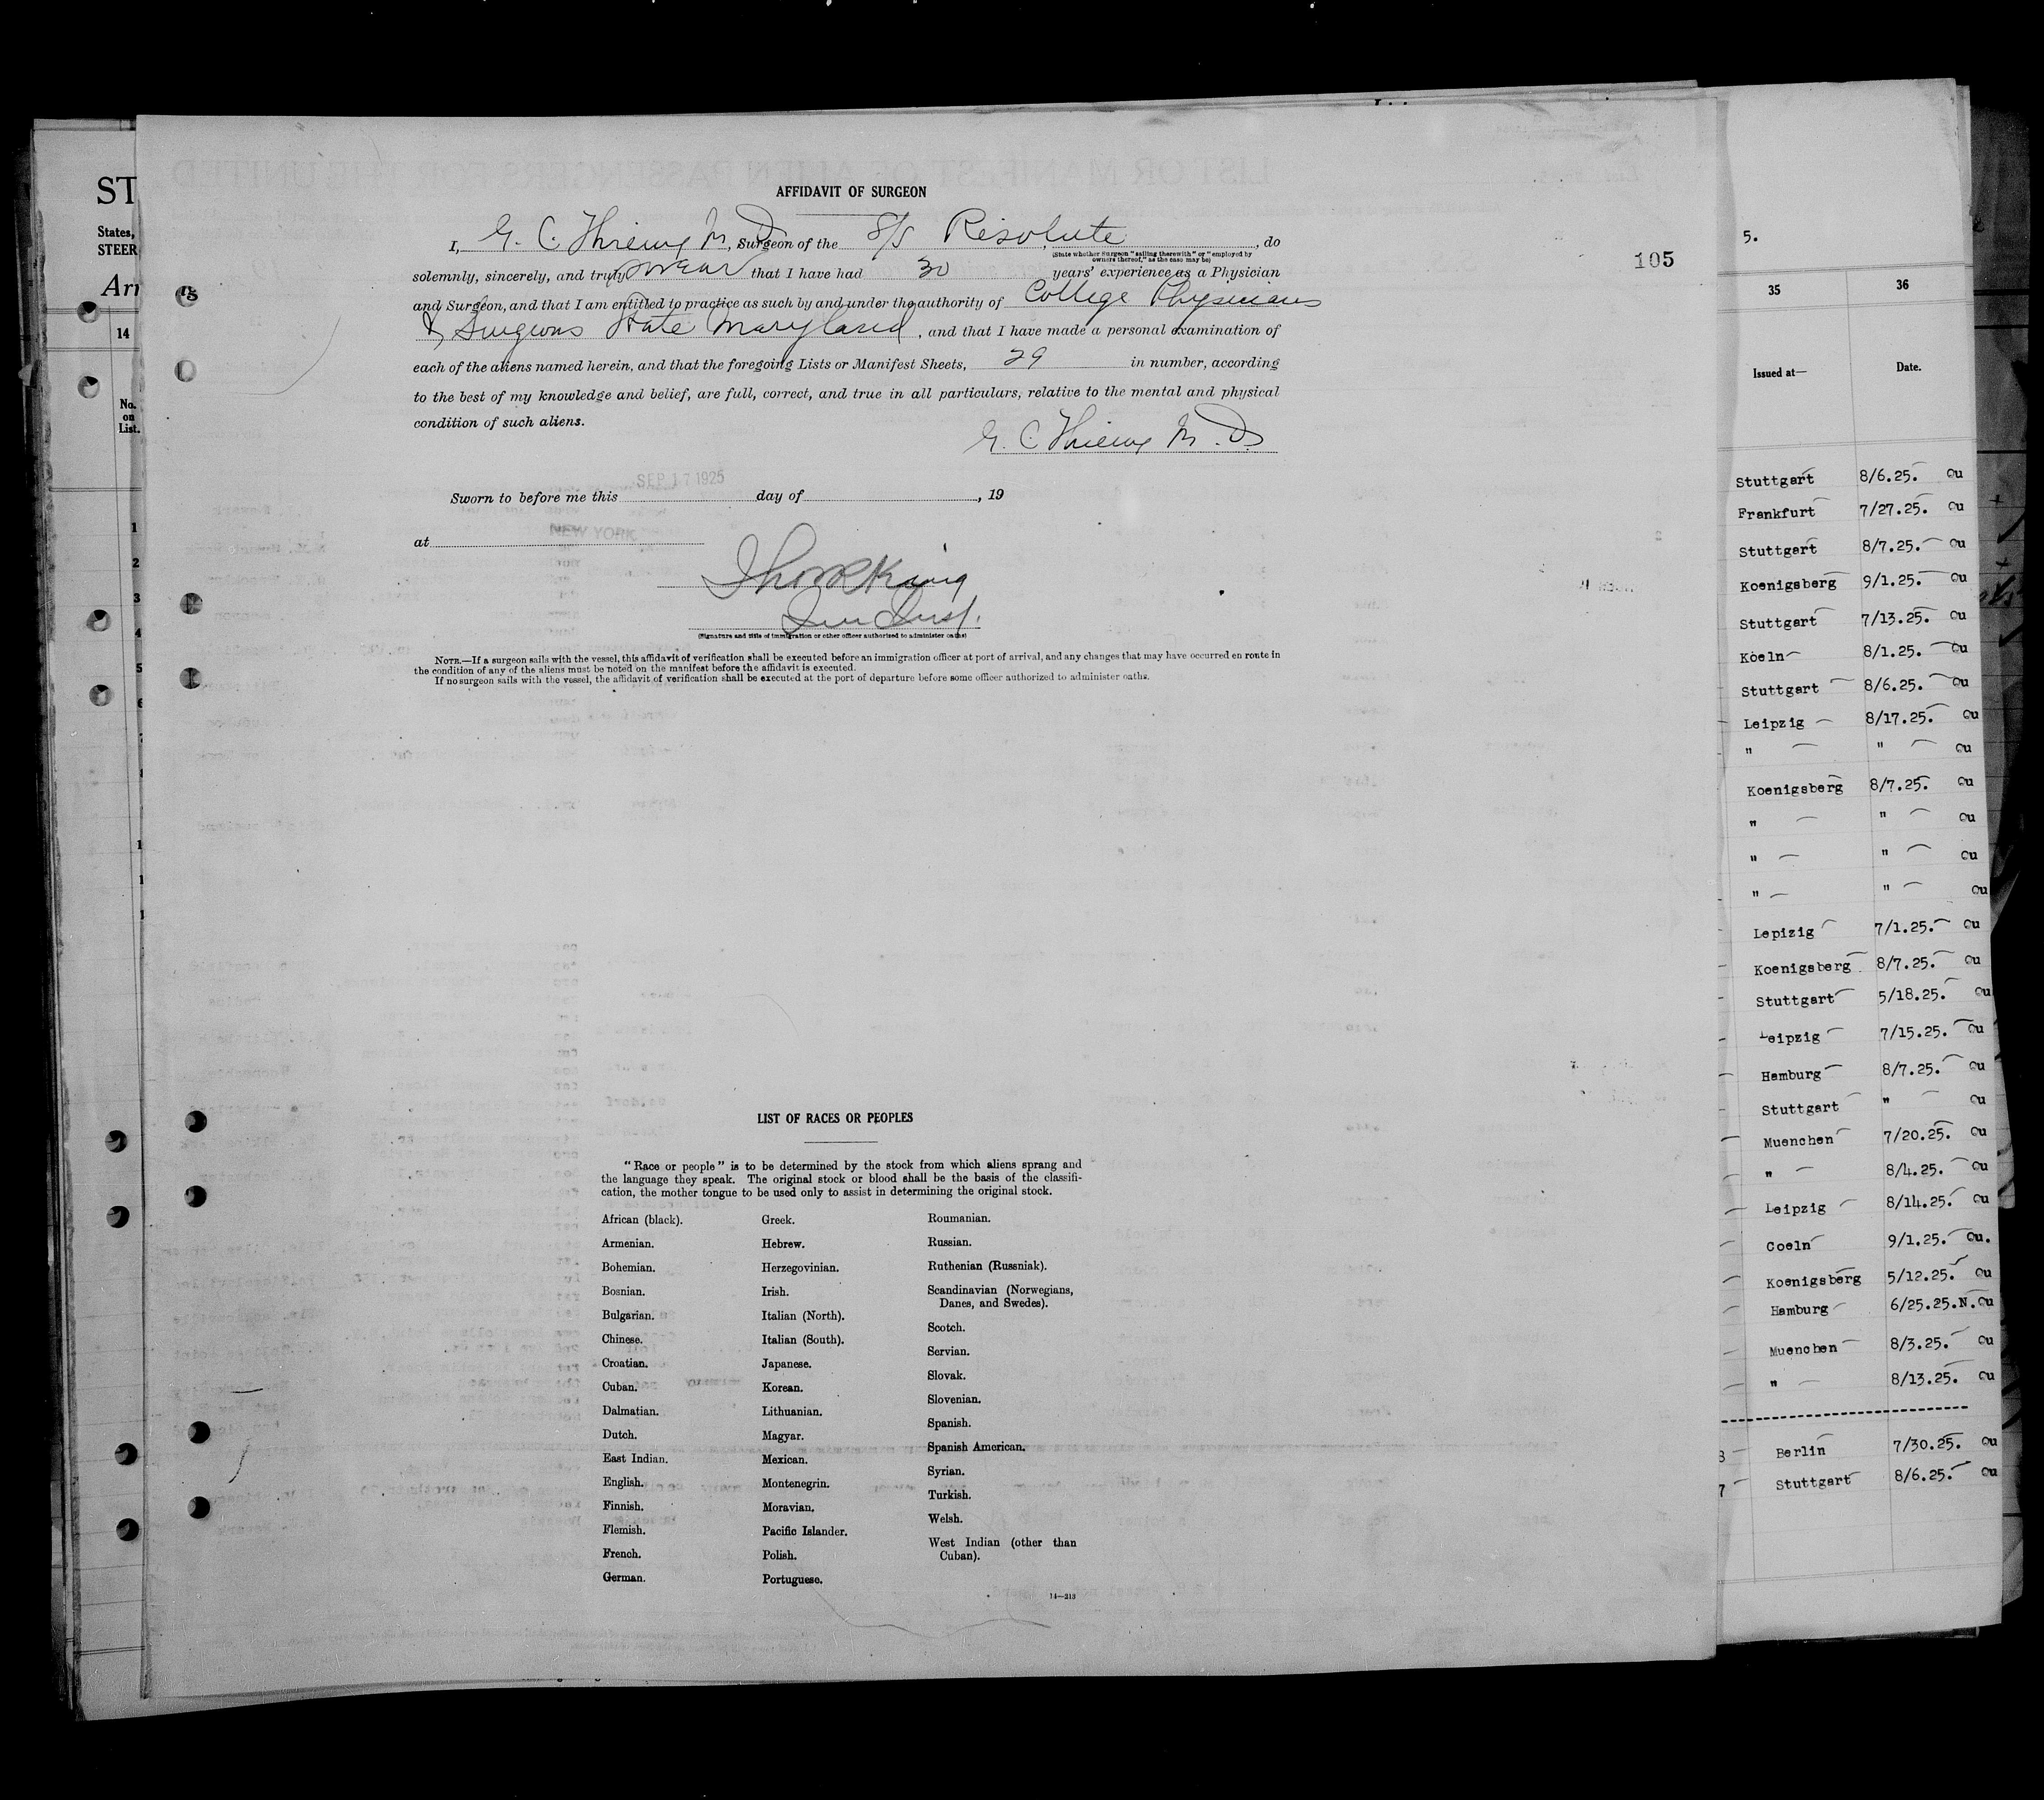 AFFIDAVIT OF SURGEON
I, G. C. M. D., Surgeon of the S/S Resolute, do
(State whether Surgeon "sailing therewith" or "employed by
owners thereof," as the case may be)
solemnly, sincerely, and truly swear that I have had 30 years' experience as a Physician
and Surgeon, and that I am entitled to practice as such by and under the authority of College Physicians
& Surgeons State Maryland, and that I have made a personal examination of
each of the aliens named herein, and that the foregoing Lists or Manifest Sheets, 29 in number, according
to the best of my knowledge and belief, are full, correct, and true in all particulars, relative to the mental and physical
condition of such aliens.
G. C. M. D.
SEP 17 1925
Sworn to before me this day of , 19
at NEW YORK
(Signature and title of immigration or other officer authorized to administer oaths)
NOTE.—If a surgeon sails with the vessel, this affidavit of verification shall be executed before an immigration officer at port of arrival, and any changes that may have occurred en route in
the condition of any of the aliens must be noted on the manifest before the affidavit is executed.
If no surgeon sails with the vessel, the affidavit of verification shall be executed at the port of departure before some officer authorized to administer oaths.
LIST OF RACES OR PEOPLES
"Race or people" is to be determined by the stock from which aliens sprang and
the language they speak. The original stock or blood shall be the basis of the classifi-
cation, the mother tongue to be used only to assist in determining the original stock.
African (black).
Armenian.
Bohemian.
Bosnian.
Bulgarian.
Chinese.
Croatian.
Cuban.
Dalmatian.
Dutch.
East Indian.
English.
Finnish.
Flemish.
French.
German.
Greek.
Hebrew.
Herzegovinian.
Irish.
Italian (North).
Italian (South).
Japanese.
Korean.
Lithuanian.
Magyar.
Mexican.
Montenegrin.
Moravian.
Pacific Islander.
Polish.
Portuguese.
Roumanian.
Russian.
Ruthenian (Russniak).
Scandinavian (Norwegians,
Danes, and Swedes).
Scotch.
Servian.
Slovak.
Slovenian.
Spanish.
Spanish American.
Syrian.
Turkish.
Welsh.
West Indian (other than
Cuban).
14—213
105
ST
States,
STEER
Arr
14
No.
on
List.
1
2
3
4
5
6
5.
35 36
Issued at— Date.
Stuttgart 8/6.25. cu
Frankfurt 7/27.25. cu
Stuttgart 8/7.25. cu
Koenigsberg 9/1.25. cu
Stuttgart 7/13.25. cu
Koeln 8/1.25. cu
Stuttgart 8/6.25. cu
Leipzig 8/17.25. cu
" " cu
Koenigsberg 8/7.25. cu
" " cu
" " cu
" " cu
Lepizig 7/1.25. cu
Koenigsberg 8/7.25. cu
Stuttgart 5/18.25. cu
Leipzig 7/15.25. cu
Hamburg 8/7.25. cu
Stuttgart " cu
Muenchen 7/20.25. cu
" 8/4.25. cu
Leipzig 8/14.25. cu
Coeln 9/1.25. cu.
Koenigsberg 5/12.25. cu
Hamburg 6/25.25.N. cu
Muenchen 8/3.25. cu
" 8/13.25. cu
Berlin 7/30.25. cu
Stuttgart 8/6.25. cu